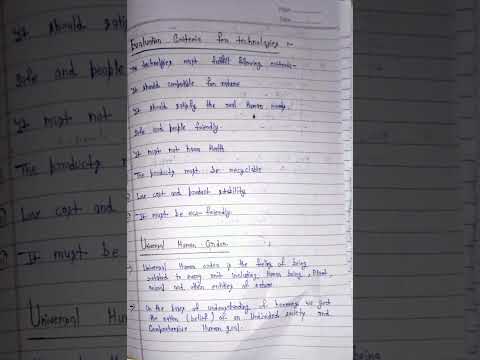 Evaluation Criteria for technologies :-
technologies must fulfill following criteria-
It should compatible for nature
It should satisfy the real Human needs
Safe and people friendly.
It must not harm Health
The products must be recyclable
Low cost and product stability
It must be eco-friendly.
Universal Human Order
→ Universal Human order is the feeling of being
related to every unit including Human being, Plant,
and other entities of nature.
→ On the basis of understanding of harmony we get
the notion (belief) of an Undivided society and
Comprehensive Human goal.
It should satis
Safe and people
It must not
The products
Low cost and
It must be
Universal Hum